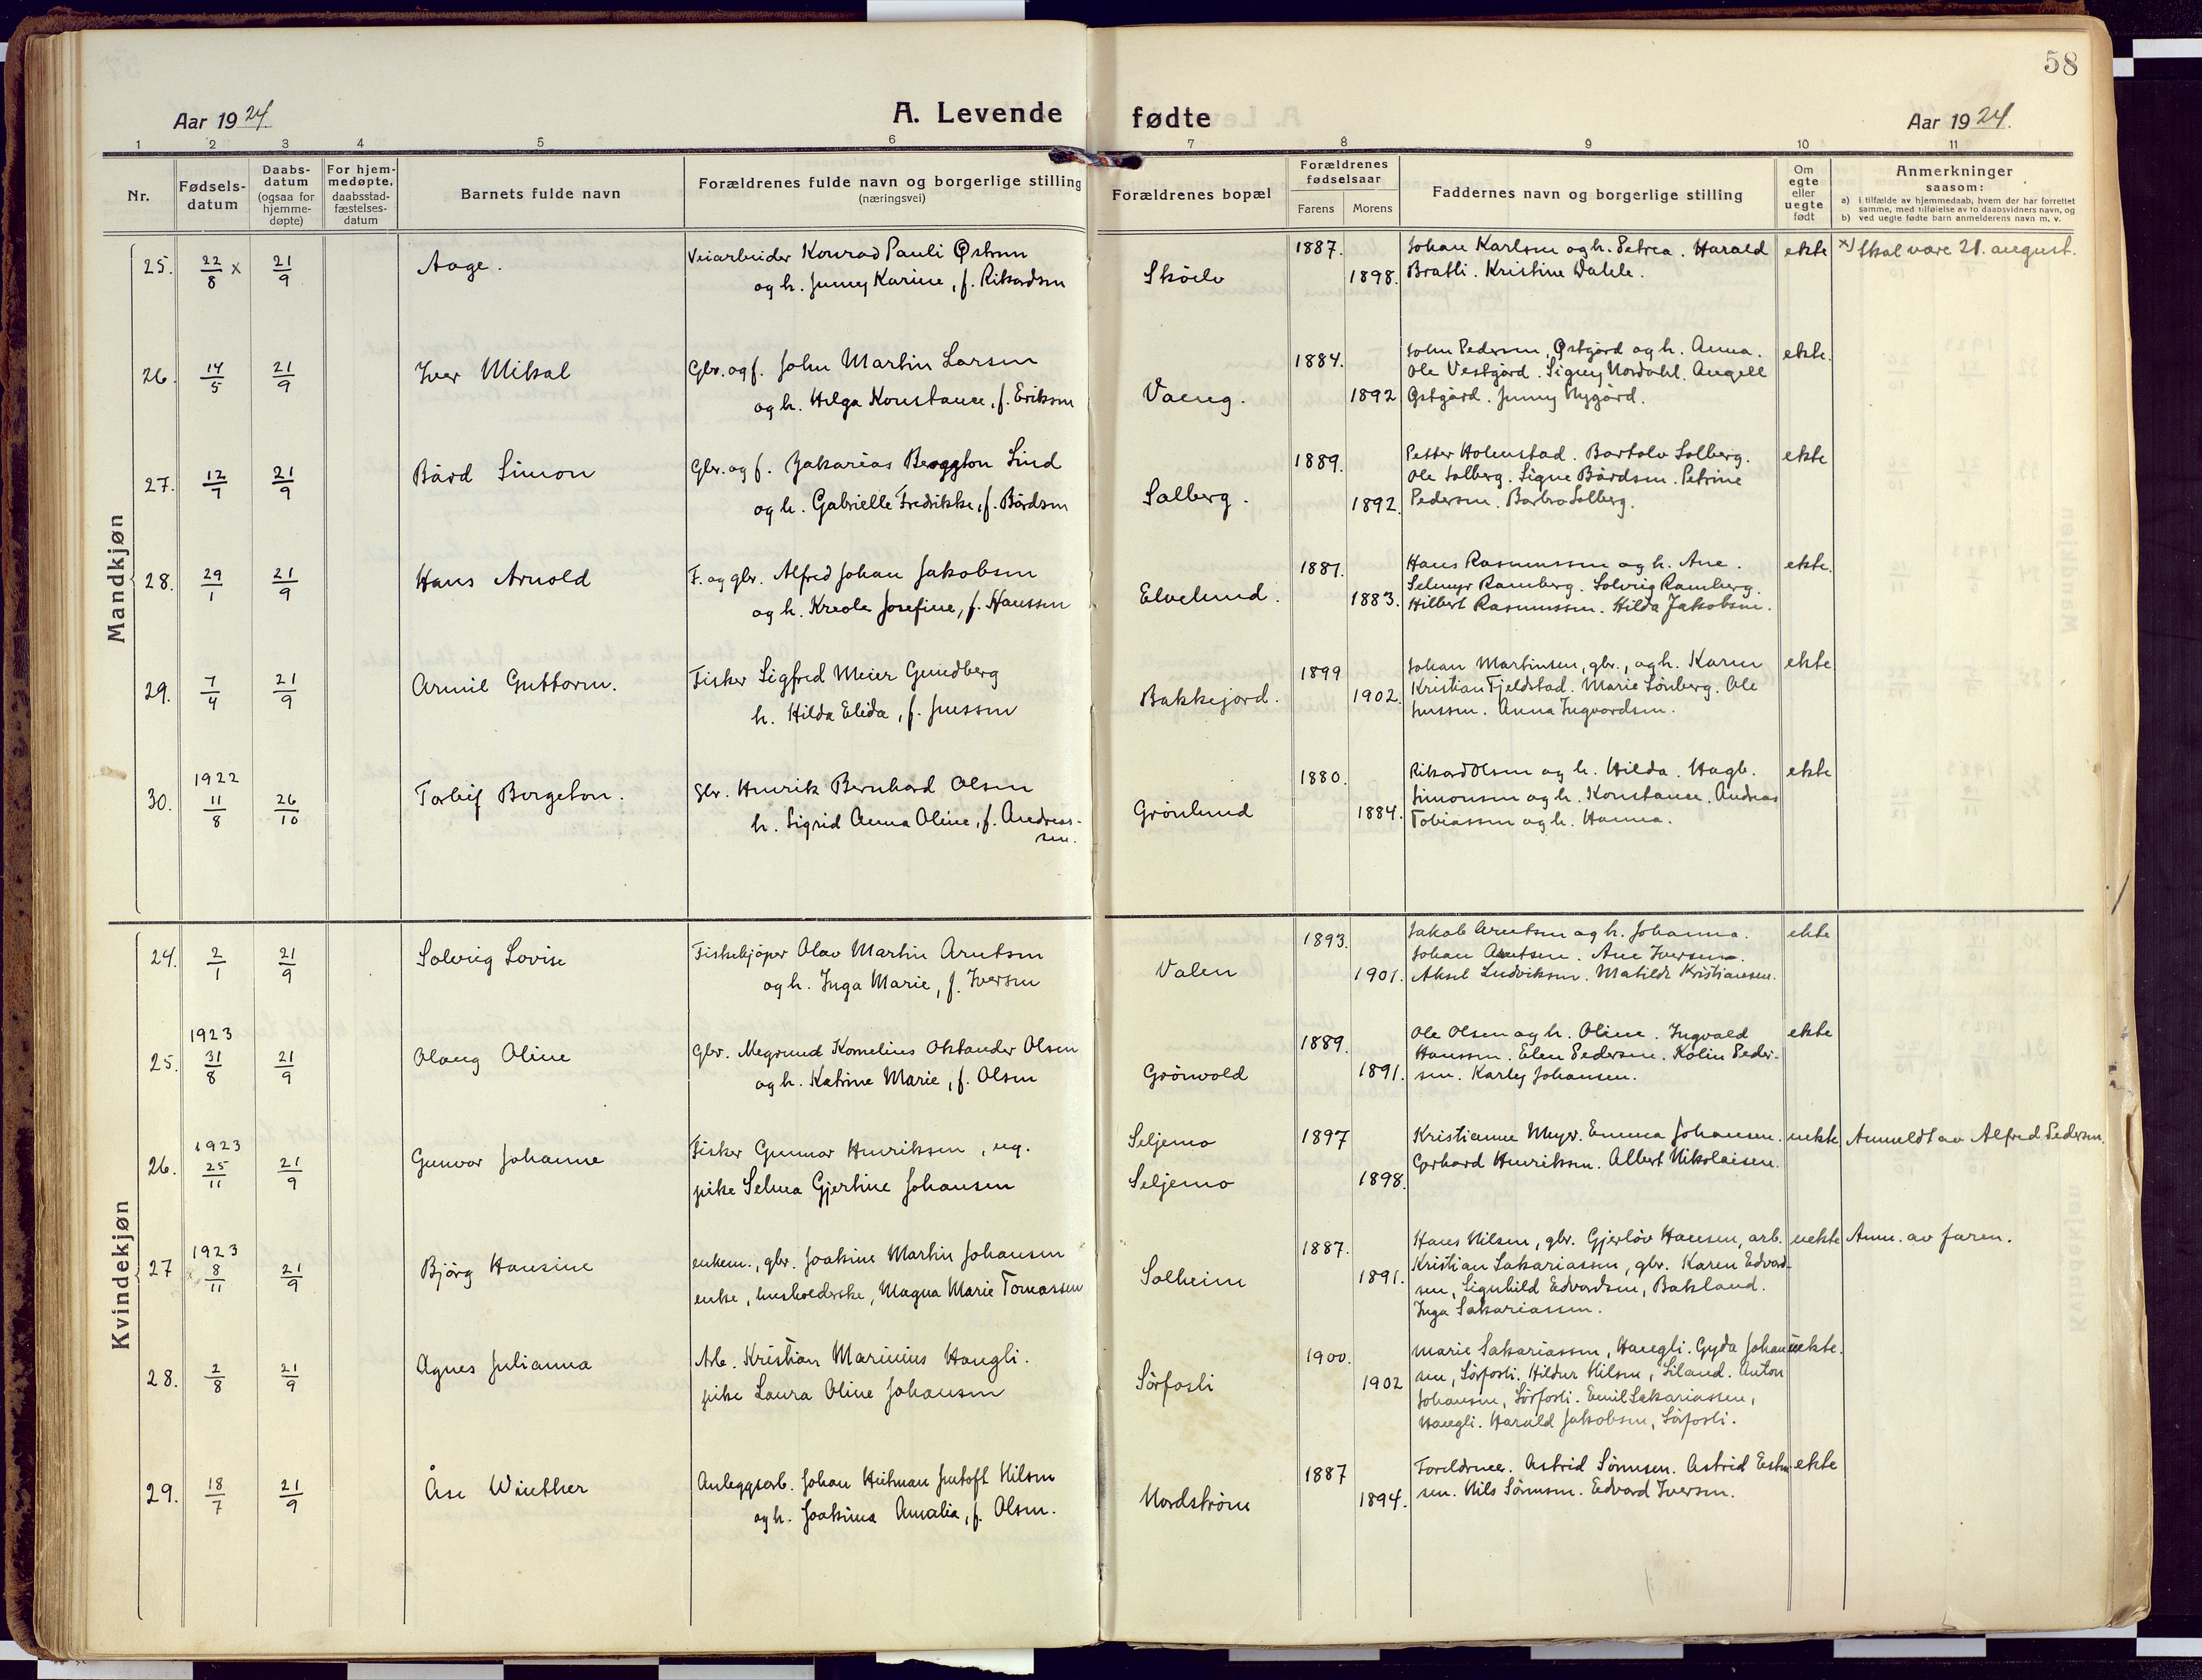 58
Aar 1924.
A. Levende fødte
Aar 1924.
1 2 3 4 5 6 7 8 9 10 11
Nr.
Fødsels-
datum
Daabs-
datum
(ogsaa for
hjemme-
døpte)
For hjem-
medøpte,
daabsstad-
fæstelses-
datum
Barnets fulde navn
Forældrenes fulde navn og borgerlige stilling
(næringsvei)
Forældrenes bopæl
Forældrenes
fødselsaar
Farens Morens
Faddernes navn og borgerlige stilling
Om
egte
eller
uegte
født
Anmerkninger
saasom:
a) i tilfælde av hjemmedaab, hvem der har forrettet
samme, med tilføielse av to daabsvidners navn, og
b) ved uegte fødte barn anmelderens navn m. v.
Mandkjøn
25. 22/8 x 21/9 Aage. Veiarbeider Konrad Pauli Østrem
og h. Jenny Karine, f. Rikardsen
Sköelv 1887. 1898.
Johan Karlsen og h. Petrea. Harald
Bratli. Kristine Dahle.
ekte x) Skal være 21. august.
26. 14/5 21/9 Iver Mikal Gbr. og f. John Martin Larsen
og h. Helga Konstance, f. Eriksen
Vaeng. 1884. 1892
John Pedersen, Østgård og h. Anna.
Ole Vestgård. Signy Nordahl. Angell
Østgård. Jenny Nygård.
ekte.
27. 12/7 21/9 Bård Simon Gbr. og f. Zakarias Berggton Lind
og h. Gabrielle Fredrikke, f. Bårdsen
Solberg. 1889. 1892.
Petter Holmstad. Bartolv Solberg.
Ole Solberg. Signe Bårdsen. Petrine
Pedersen. Barbro Solberg.
ekte
28. 29/1 21/9 Hans Arnold F. og gbr. Alfred Johan Jakobsen
og h. Kreole Josefine, f. Hanssen
Elvelund. 1881. 1883.
Hans Rasmussen og h. Ane.
Selmyr Ramberg. Solveig Ramberg.
Hilbert Rasmussen. Hilda Jakobsen.
ekte.
29. 7/4 21/9 Armil Guttorm. Fisker Sigfred Meier Gundberg
h. Hilda Elida, f. Jenssen
Bakkejord. 1899 1902.
Johan Martinsen, gbr., og h. Karen
Kristian Fjeldstad. Marie Lönberg. Ole
Jenssen. Anna Ingvardsen.
ekte
30. 1922 11/8 26/10 Torleif Bergeton. Gbr. Henrik Bernhard Olsen
h. Sigrid Anna Oline, f. Andreas-
sen.
Grönlund 1880. 1884.
Rikard Olsen og h. Hilda. Hagb.
Simonsen og h. Konstance. Andreas
Tobiassen og h. Hanna.
ekte
Kvindekjøn
24. 2/1 21/9 Solveig Lovise Fiskekjöper Olav Martin Arntsen
og h. Inga Marie, f. Iversen
Valen 1893. 1901.
Jakob Arntsen og h. Johanna.
Johan Arntsen. Ane Iversen.
Aksel Ludviksen. Matilde Kristiansen.
ekte
25. 1923 31/8 21/9 Olaug Oline Gbr. Megrund Kornelius Oktander Olsen
og h. Katrine Marie, f. Olsen
Grönvold 1889. 1891.
Ole Olsen og h. Oline. Ingvald
Hanssen. Elen Pedersen. Kolin Peder-
sen. Karley Johansen.
ekte
26. 1923 25/11 21/9 Gunvor Johanne Fisker Gunnar Henriksen, ug.
pike Selma Gjertine Johansen
Seljemo
Seljemo
1897 1898.
Kristianne Meyer. Emma Johansen.
Gerhard Henriksen. Albert Nikolaisen.
uekte Anmeldt av Alfred Pedersen.
27 1923 8/11 21/9 Björg Hansine enkem., gbr. Joakim Martin Johansen
enke, husholderske, Magna Marie Tomassen
Solheim 1887. 1891.
Hans Nilsen, gbr. Gjerlöv Hansen, arb.
Kristian Sakariassen, gbr. Karen Edvard-
sen, Signhild Edvardsen, Bakland.
Inga Sakariassen.
uekte Anm. av faren.
28. 2/8 21/9 Agnes Julianna Arb. Kristian Marinius Haugli.
pike Laura Oline Johansen
Sörfosli 1900. 1902
Marie Sakariassen, Haugli. Gyda Johan-
sen, Sörfosli. Hildur Nilsen, Siland. Anton
Johansen, Sörfosli. Emil Sakariassen,
Haugli. Harald Jakobsen, Sörfosli.
uekte.
29. 18/7 21/9 Åse Winther Anleggsarb. Johan Heitman Jentoft Nilsen
og h. Joakima Amalia, f. Olsen.
Nordström 1887 1894.
Foreldrene. Astrid Sörensen. Astrid
sen. Nils Sörensen. Edvard Iversen.
ekte